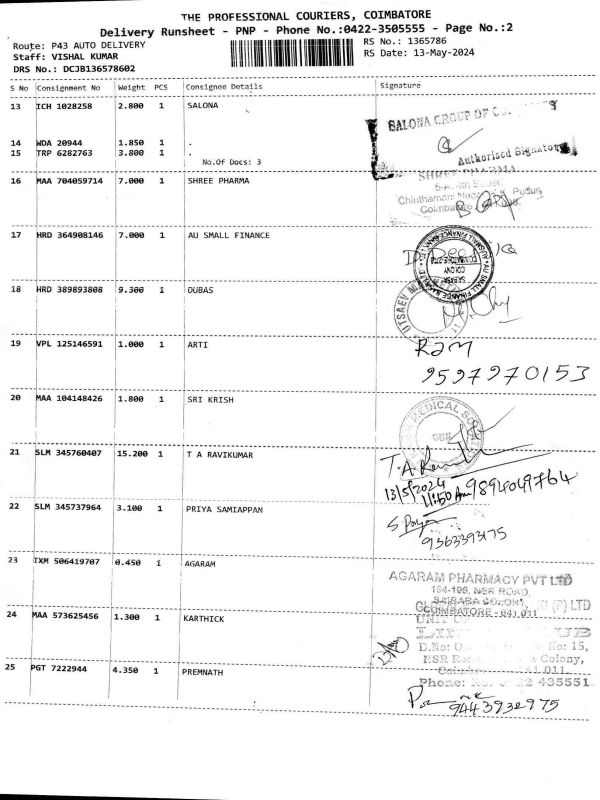 THE PROFESSIONAL COURIERS, COIMBATORE
Delivery Runsheet - PNP - Phone No.:0422-3505555 - Page No.:2
Route: P43 AUTO DELIVERY
RS No.: 1365786
Staff: VISHAL KUMAR
RS Date: 13-May-2024
DRS No.: DCJB136578602
S No Consignment No Weight PCS Consignee Details Signature
13 ICH 1028258 2.800 1 SALONA
SALONA GROUP OF
14 WDA 20944 1.850 1 .
15 TRP 6282763 3.800 1 .
Authorised Signatory
No.Of Docs: 3
16 MAA 704059714 7.000 1 SHREE PHARMA
SHREE PHARMA
Pudur,
17 HRD 364908146 7.000 1 AU SMALL FINANCE
18 HRD 389893808 9.300 1 DUBAS
19 VPL 125146591 1.000 1 ARTI
Ram
9597970153
20 MAA 104148426 1.800 1 SRI KRISH
MEDICAL
21 SLM 345760407 15.200 1 T A RAVIKUMAR
T.A.
13/5/2024
11:50 Am 9894049764
22 SLM 345737964 3.100 1 PRIYA SAMIAPPAN
S.Priya
9363393175
23 TXM 506419707 0.450 1 AGARAM
AGARAM PHARMACY PVT LTD
194-196, NSR ROAD,
SAIBABA COLONY,
COIMBATORE - 641 011
(P) LTD
24 MAA 573625456 1.300 1 KARTHICK
UNIT
D.No: No: 15,
NSR Colony,
641 011.
25 PGT 7222944 4.350 1 PREMNATH
Phone: 435551
9443932975